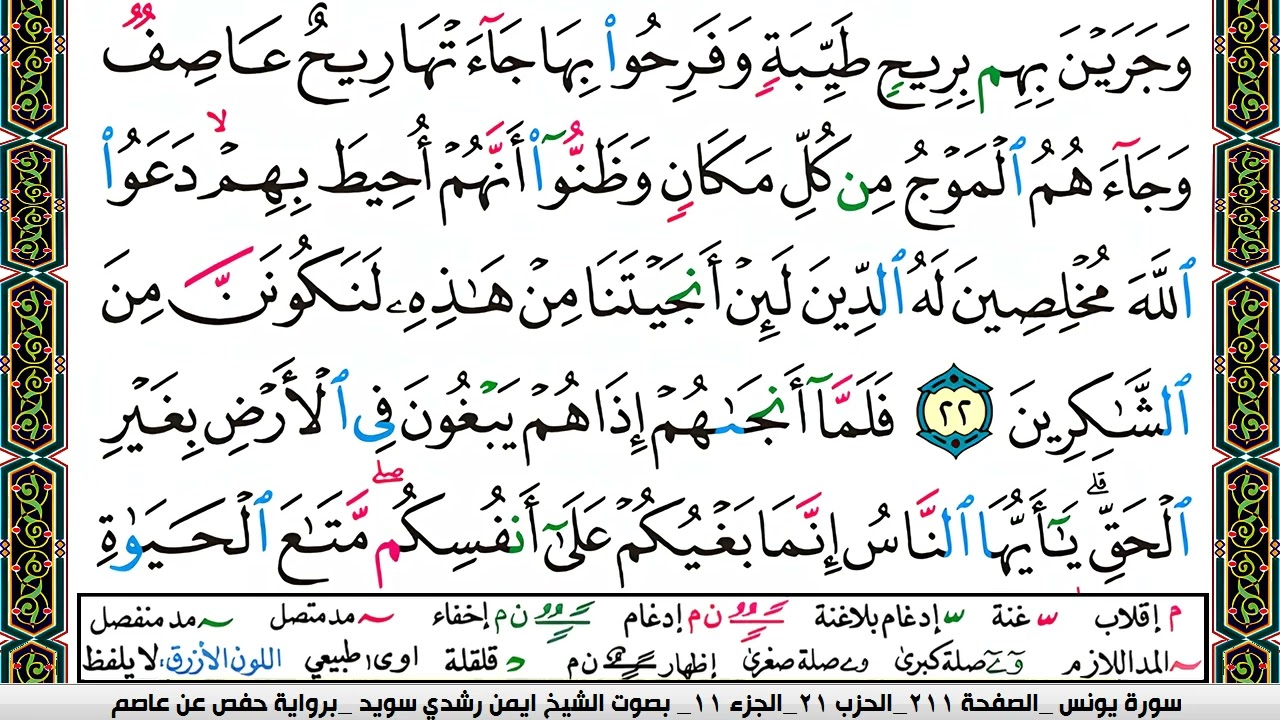 وَجَرَيْنَ بِهِم بِرِيحٍ طَيِّبَةٍ وَفَرِحُوا۟ بِهَا جَآءَتْهَا رِيحٌ عَاصِفٌ
وَجَآءَهُمُ ٱلْمَوْجُ مِن كُلِّ مَكَانٍ وَظَنُّوٓا۟ أَنَّهُمْ أُحِيطَ بِهِمْ ۙ دَعَوُا۟
ٱللَّهَ مُخْلِصِينَ لَهُ ٱلدِّينَ لَئِنْ أَنجَيْتَنَا مِنْ هَـٰذِهِۦ لَنَكُونَنَّ مِنَ
ٱلشَّـٰكِرِينَ ٢٢ فَلَمَّآ أَنجَىٰهُمْ إِذَا هُمْ يَبْغُونَ فِى ٱلْأَرْضِ بِغَيْرِ
ٱلْحَقِّ ۗ يَـٰٓأَيُّهَا ٱلنَّاسُ إِنَّمَا بَغْيُكُمْ عَلَىٰٓ أَنفُسِكُم ۖ مَّتَـٰعَ ٱلْحَيَوٰةِ
م إقلاب غنة إدغام بلاغنة ن م إدغام ن م إخفاء مد متصل مد منفصل
المد اللازم و ے صلة كبرى و ے صلة صغرى إظهار ن م قلقلة اوى ا طبيعي اللون الأزرق: لا يلفظ
سورة يونس _الصفحة ٢١١_الحزب ٢١_الجزء ١١_ بصوت الشيخ ايمن رشدي سويد _برواية حفص عن عاصم